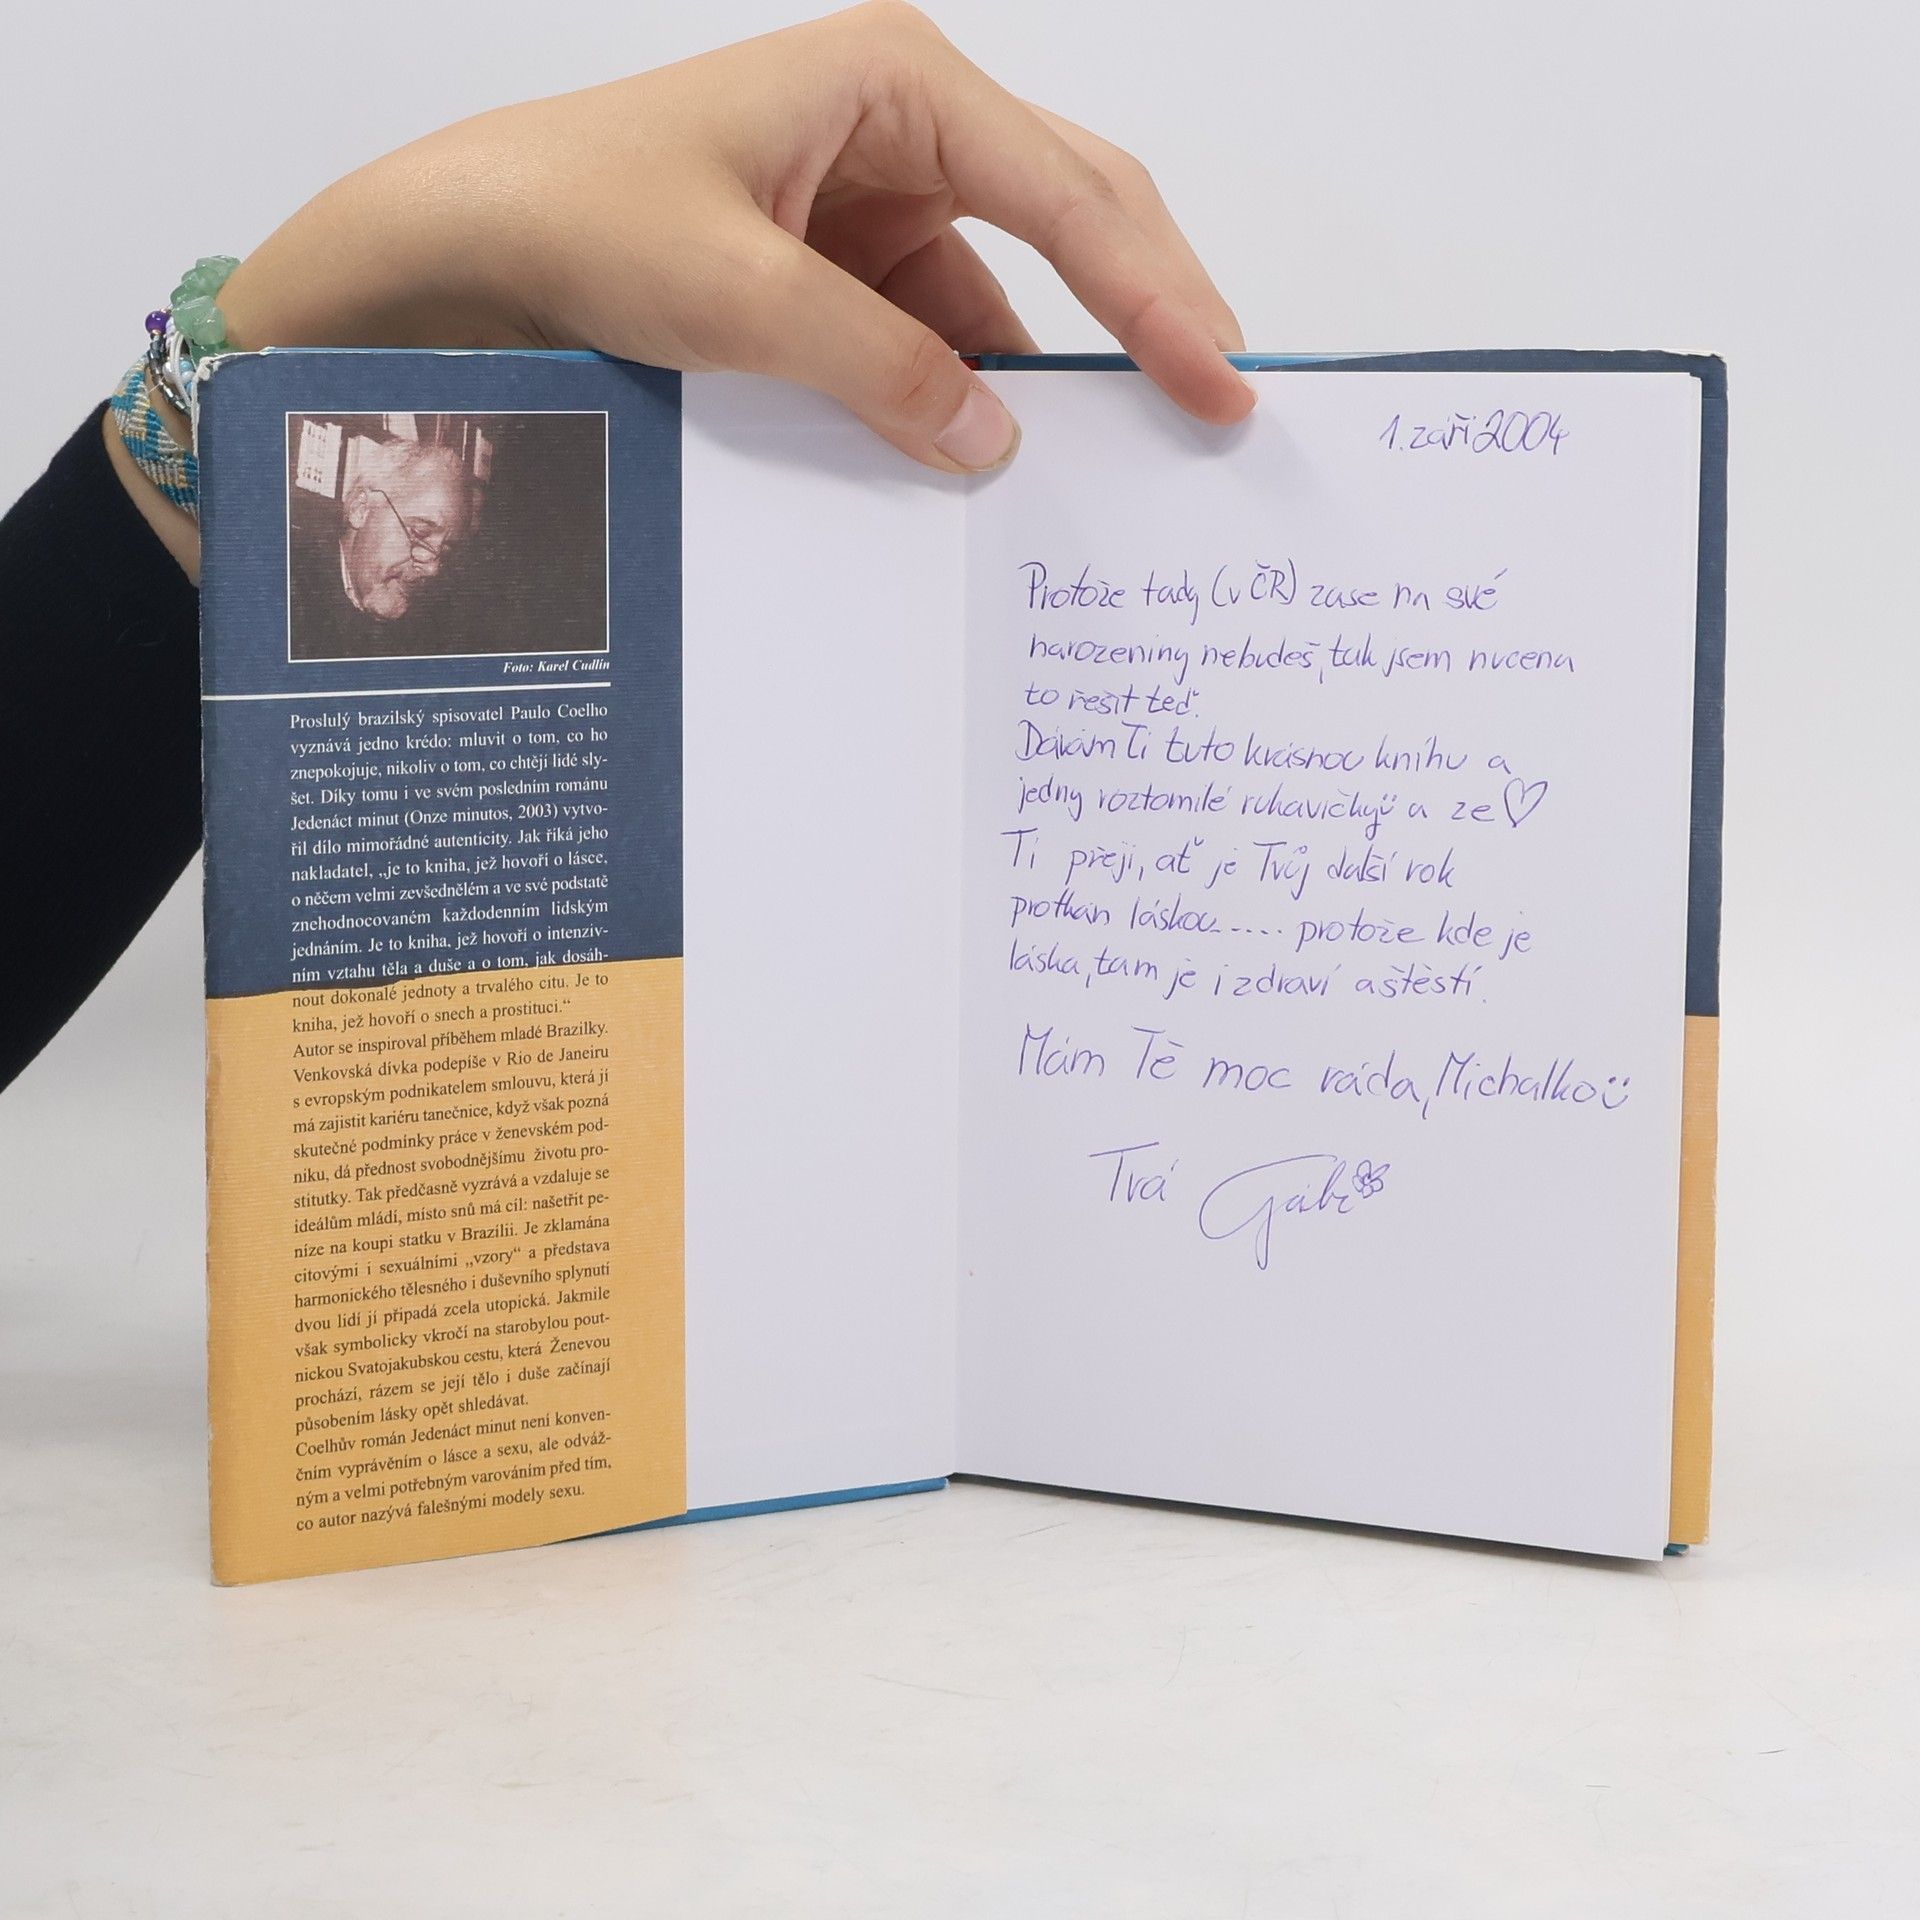 Foto: Karel Cudlín
Proslulý brazilský spisovatel Paulo Coelho
vyznává jedno krédo: mluvit o tom, co ho
znepokojuje, nikoliv o tom, co chtějí lidé sly-
šet. Díky tomu i ve svém posledním románu
Jedenáct minut (Onze minutos, 2003) vytvo-
řil dílo mimořádné autenticity. Jak říká jeho
nakladatel, „je to kniha, jež hovoří o lásce,
o něčem velmi zevšednělém a ve své podstatě
znehodnocovaném každodenním lidským
jednáním. Je to kniha, jež hovoří o intenziv-
ním vztahu těla a duše a o tom, jak dosáh-
nout dokonalé jednoty a trvalého citu. Je to
kniha, jež hovoří o snech a prostituci.“
Autor se inspiroval příběhem mladé Brazilky.
Venkovská dívka podepíše v Rio de Janeiru
s evropským podnikatelem smlouvu, která jí
má zajistit kariéru tanečnice, když však pozná
skutečné podmínky práce v ženevském pod-
niku, dá přednost svobodnějšímu životu pro-
stitutky. Tak předčasně vyzrává a vzdaluje se
ideálům mládí, místo snů má cíl: našetřit pe-
níze na koupi statku v Brazílii. Je zklamána
citovými i sexuálními „vzory“ a představa
harmonického tělesného i duševního splynutí
dvou lidí jí připadá zcela utopická. Jakmile
však symbolicky vkročí na starobylou pout-
nickou Svatojakubskou cestu, která Ženevou
prochází, rázem se její tělo i duše začínají
působením lásky opět shledávat.
Coelhův román Jedenáct minut není konven-
čním vyprávěním o lásce a sexu, ale odváž-
ným a velmi potřebným varováním před tím,
co autor nazývá falešnými modely sexu.
1. září 2004
Protože tady (v ČR) zase na své
narozeniny nebudeš, tak jsem nucena
to řešit teď.
Dávám Ti tuto krásnou knihu a
jedny roztomilé rukavičky a ze ♡
Ti přeji, ať je Tvůj další rok
protkán láskou..... protože kde je
láska, tam je i zdraví a štěstí.
Mám Tě moc ráda, Michalko
Tvá Gábi